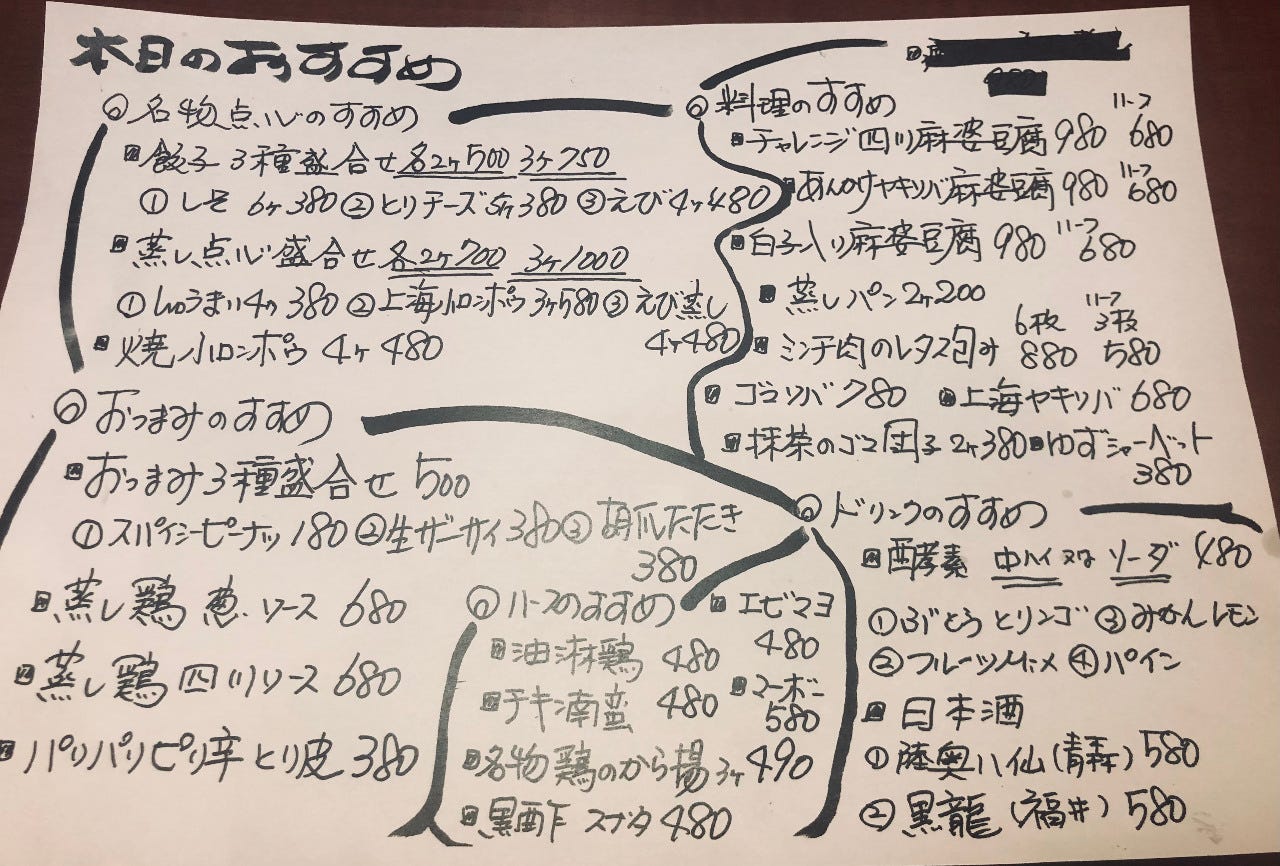 本日のおすすめ
◎名物点心のすすめ
餃子3種盛合せ各2ヶ500 3ヶ750
①しそ6ヶ380②とりチーズ5ヶ380③えび4ヶ480
蒸し点心盛合せ各2ヶ700 3ヶ1000
①しゅうまい4ヶ380②上海小ロンポウ3ヶ580③えび蒸し
4ヶ480
焼小ロンポウ4ヶ480
◎おつまみのすすめ
おつまみ3種盛合せ500
①スパイシーピーナッツ180②生ザーサイ380③胡瓜たたき
380
蒸し鶏葱ソース680
蒸し鶏四川ソース680
パリパリピリ辛とり皮380
◎ハーフのすすめ
油淋鶏480
チキン南蛮480
名物鶏のから揚3ヶ490
黒酢スブタ480
エビマヨ
480
マーボー
580
◎料理のすすめ
ハーフ
チャレンジ四川麻婆豆腐980 680
ハーフ
あんかけヤキソバ麻婆豆腐980 680
ハーフ
白子入り麻婆豆腐980 680
蒸しパン2ヶ200
ハーフ
6枚 3枚
ミンチ肉のレタス包み 880 580
ゴマソバ 780 上海ヤキソバ680
抹茶のゴマ団子2ヶ380 ゆずシャーベット
380
◎ドリンクのすすめ
酵素 中ハイ又はソーダ 480
①ぶどうとリンゴ③みかんレモン
②フルーツ④パイン
日本酒
①陸奥八仙(青森)580
②黒龍(福井)580